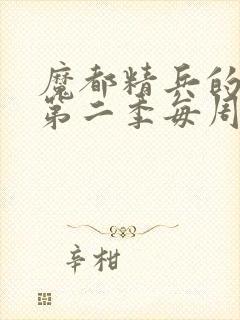 魔都精兵的
第二季每周
辛柑